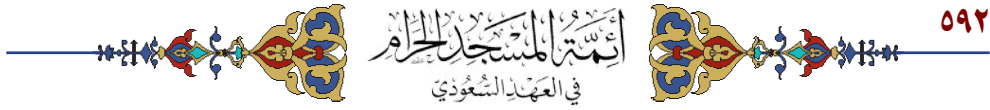 ٥٩٢
أَئِمَّةُ المَسْجِدِ الحَرَامِ
في العَهْدِ السُّعُوْدِيّ